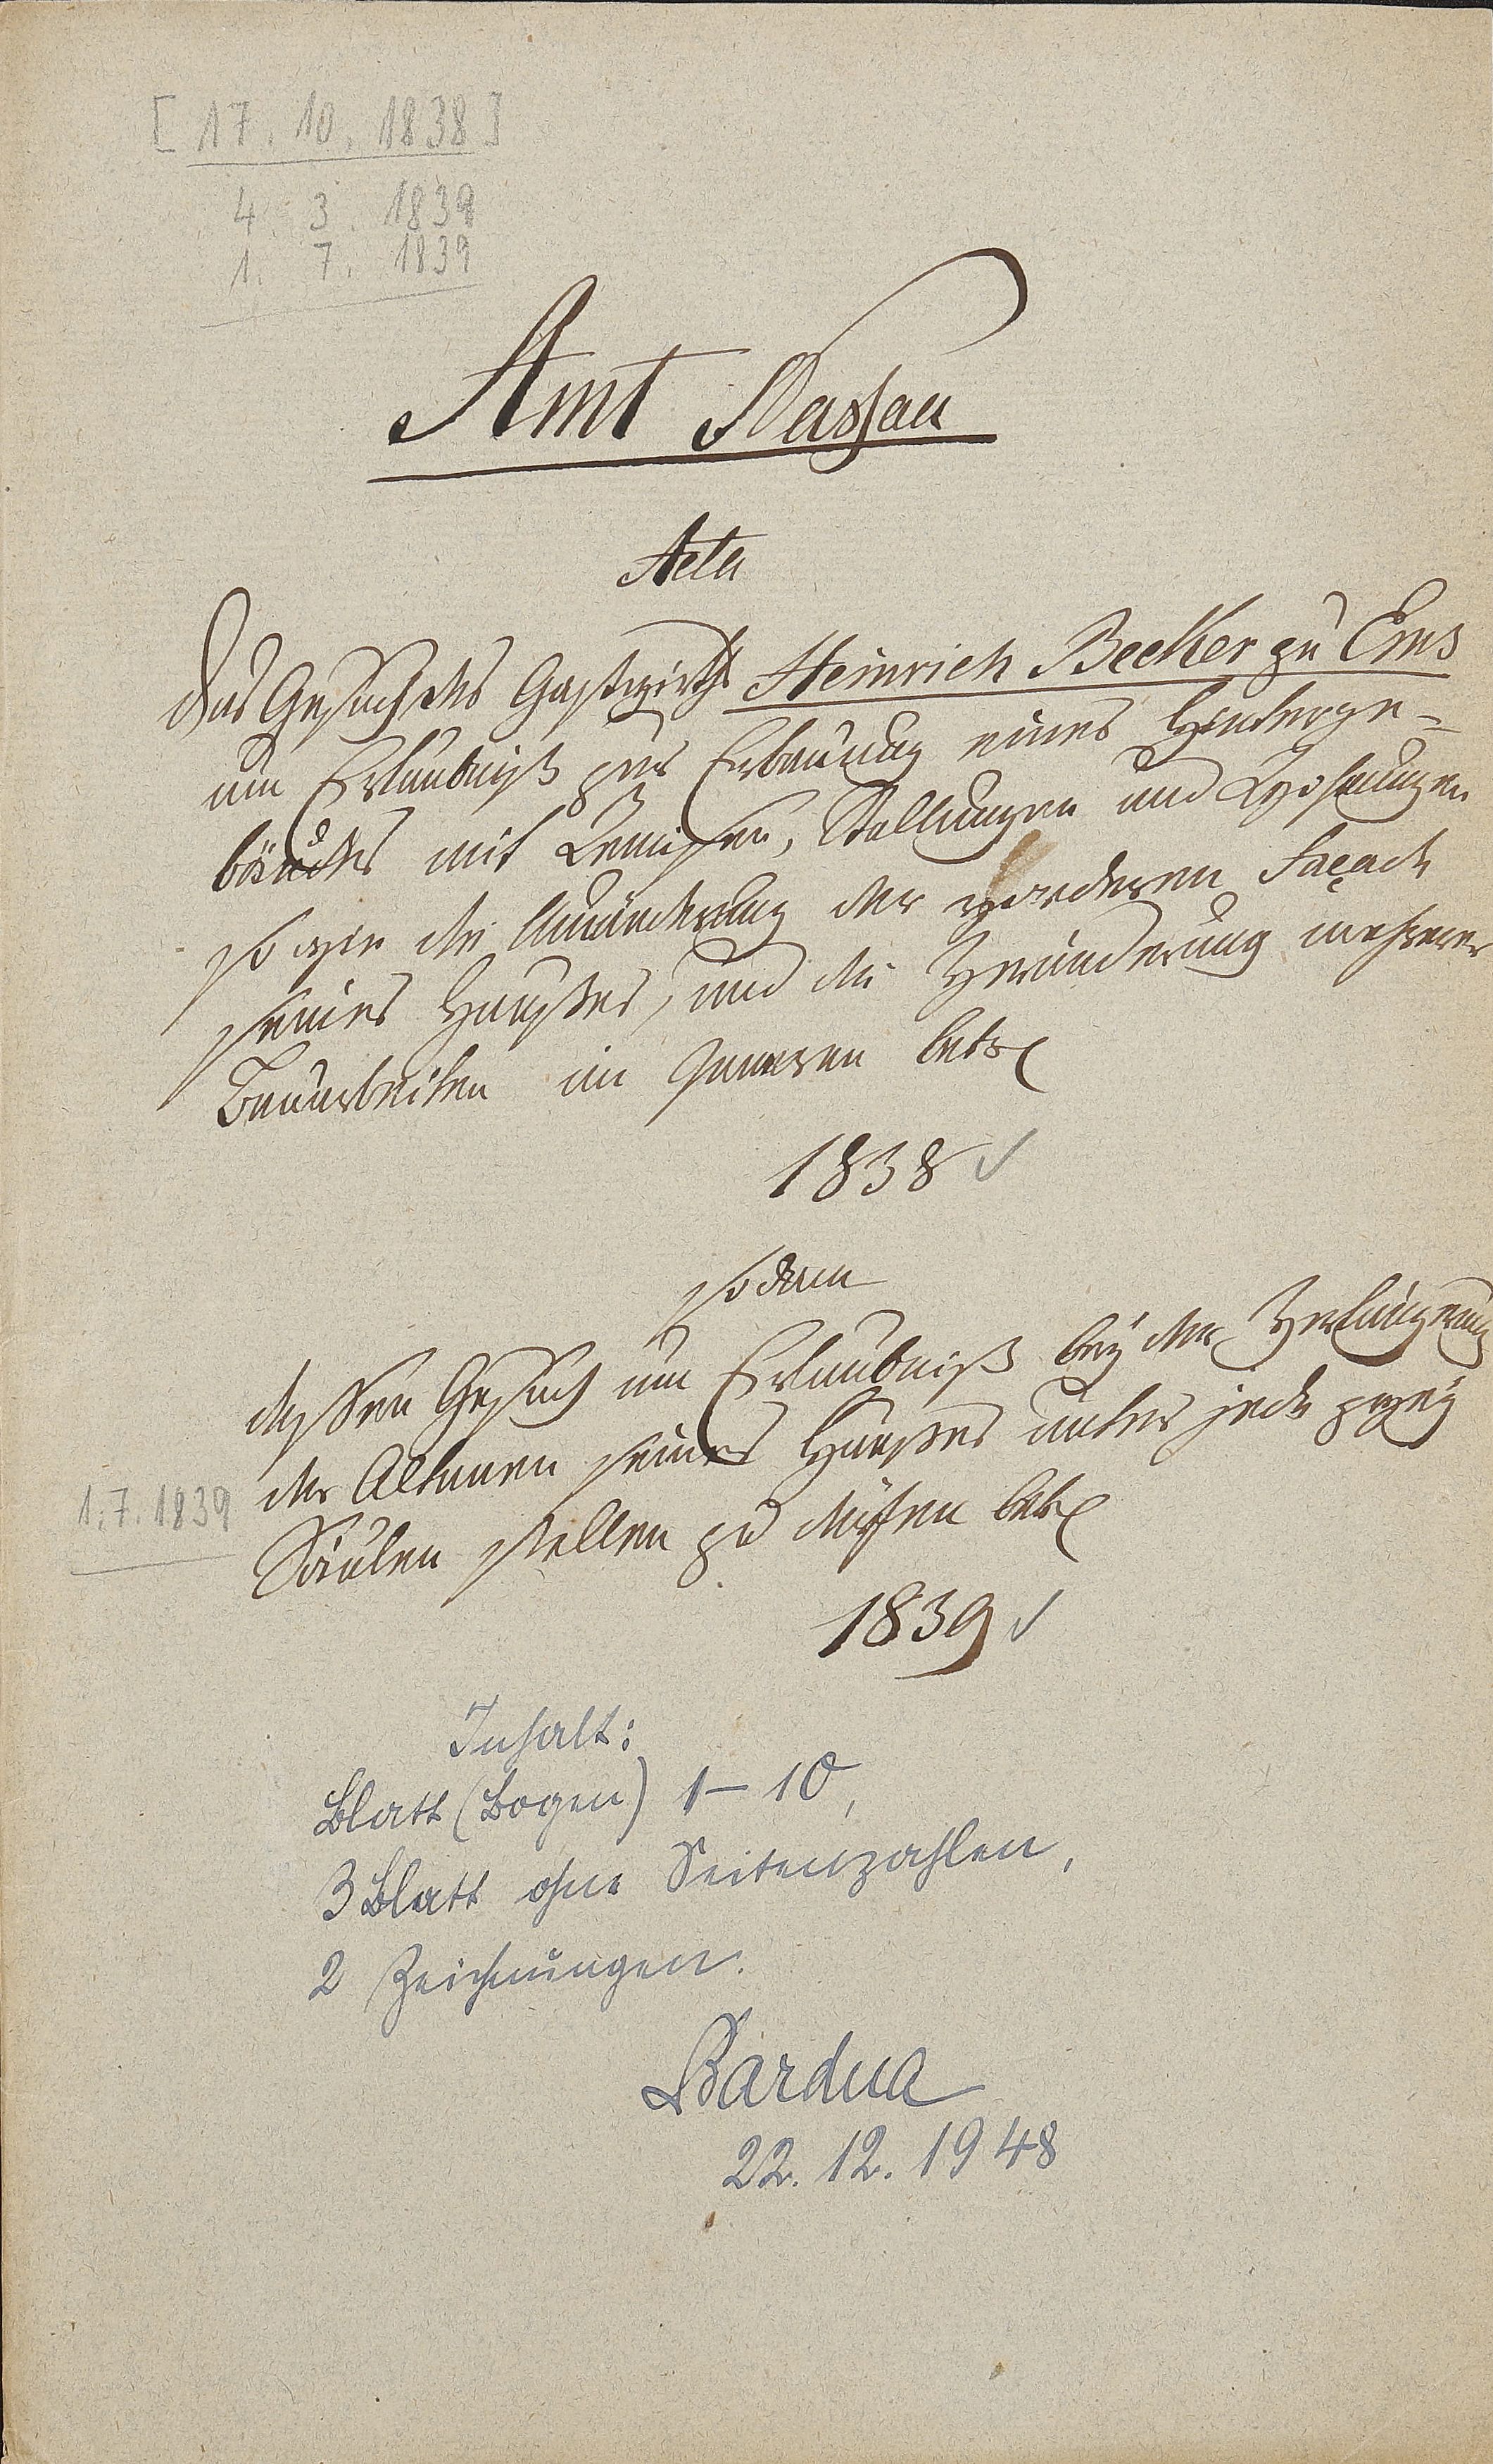 [17. 10. 1838]
4. 3. 1839
1. 7. 1839
Amt Nassau
Acta
das Gesuch des Gastwirths Heinrich Becker zu Ems
um Erlaubniß zur Erbauung eines Hinterge=
bäudes mit Remisen, Stallungen und Wohnungen
so wie die Umänderung der vorderen Façade
seines Hauses, und die Veränderung mehrerer
Bauarbeiten im Inneren betr
1838 ✓
sodann
dessen Gesuch um Erlaubniß bey der Verlängerung
der Altanen seines Hauses unter jede zwey
Säulen stellen zu dürfen betr
1.7.1839
1839 ✓
Inhalt:
Blatt (Bogen) 1–10,
3 Blatt ohne Seitenzahlen,
2 Zeichnungen.
Bardua
22. 12. 1948